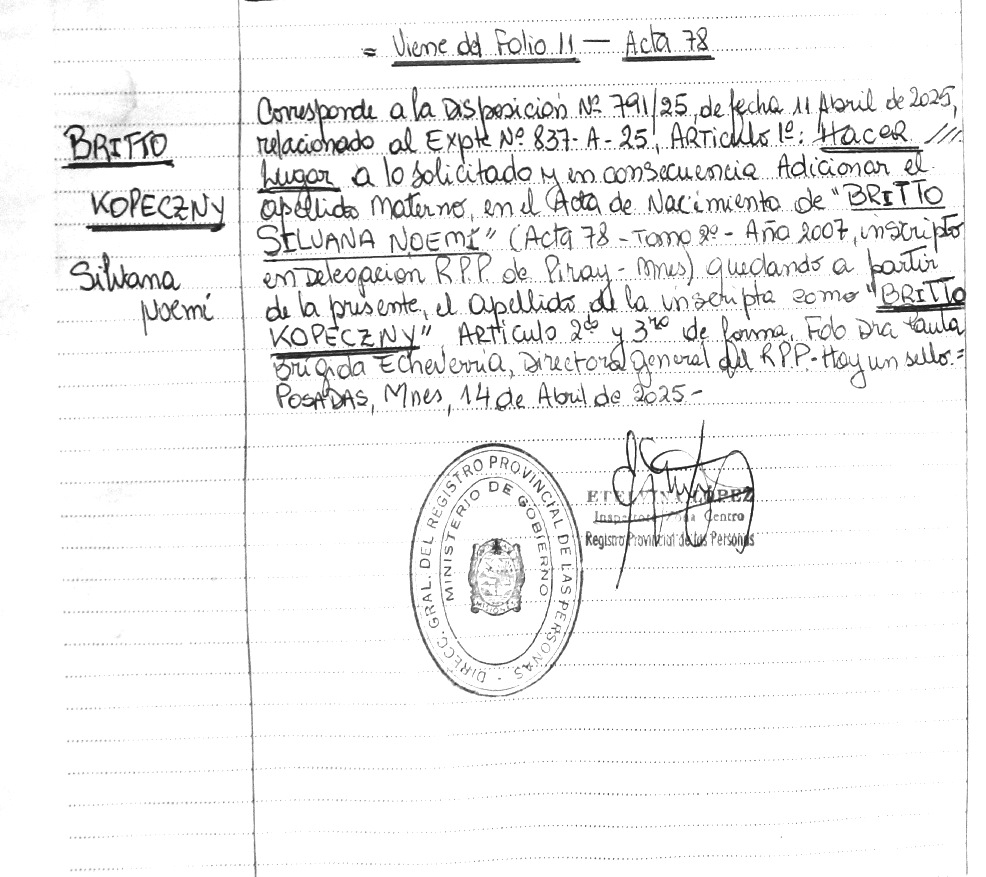 = Viene del Folio 11 — Acta 78
BRITTO
KOPECZNY
Silvana
Noemí
Corresponde a la Disposición Nº 791/25, de fecha 11 Abril de 2025,
relacionado al Expte Nº 837-A-25, ARTiculo 1º: HACER ///
Lugar a lo solicitado y en consecuencia Adicionar el
apellido Materno, en el Acta de Nacimiento de "BRITTO
SILVANA NOEMÍ" (Acta 78 - Tomo 2º - Año 2007, inscripto
en Delegacion R.P.P. de Piray - Mnes) quedando a partir
de la presente, el apellido de la inscripta como "BRITTO
KOPECZNY" ARTiculo 2do y 3ro de forma. Fdo Dra Paula
Brigida Echeverria, Directora general del RPP - Hay un sello. =
POSADAS, Mnes, 14 de Abril de 2025 -
DIRECC. GRAL. DEL REGISTRO PROVINCIAL DE LAS PERSONAS -
MINISTERIO DE GOBIERNO
LOPEZ
Zona Centro
Registro Provincial de las Personas